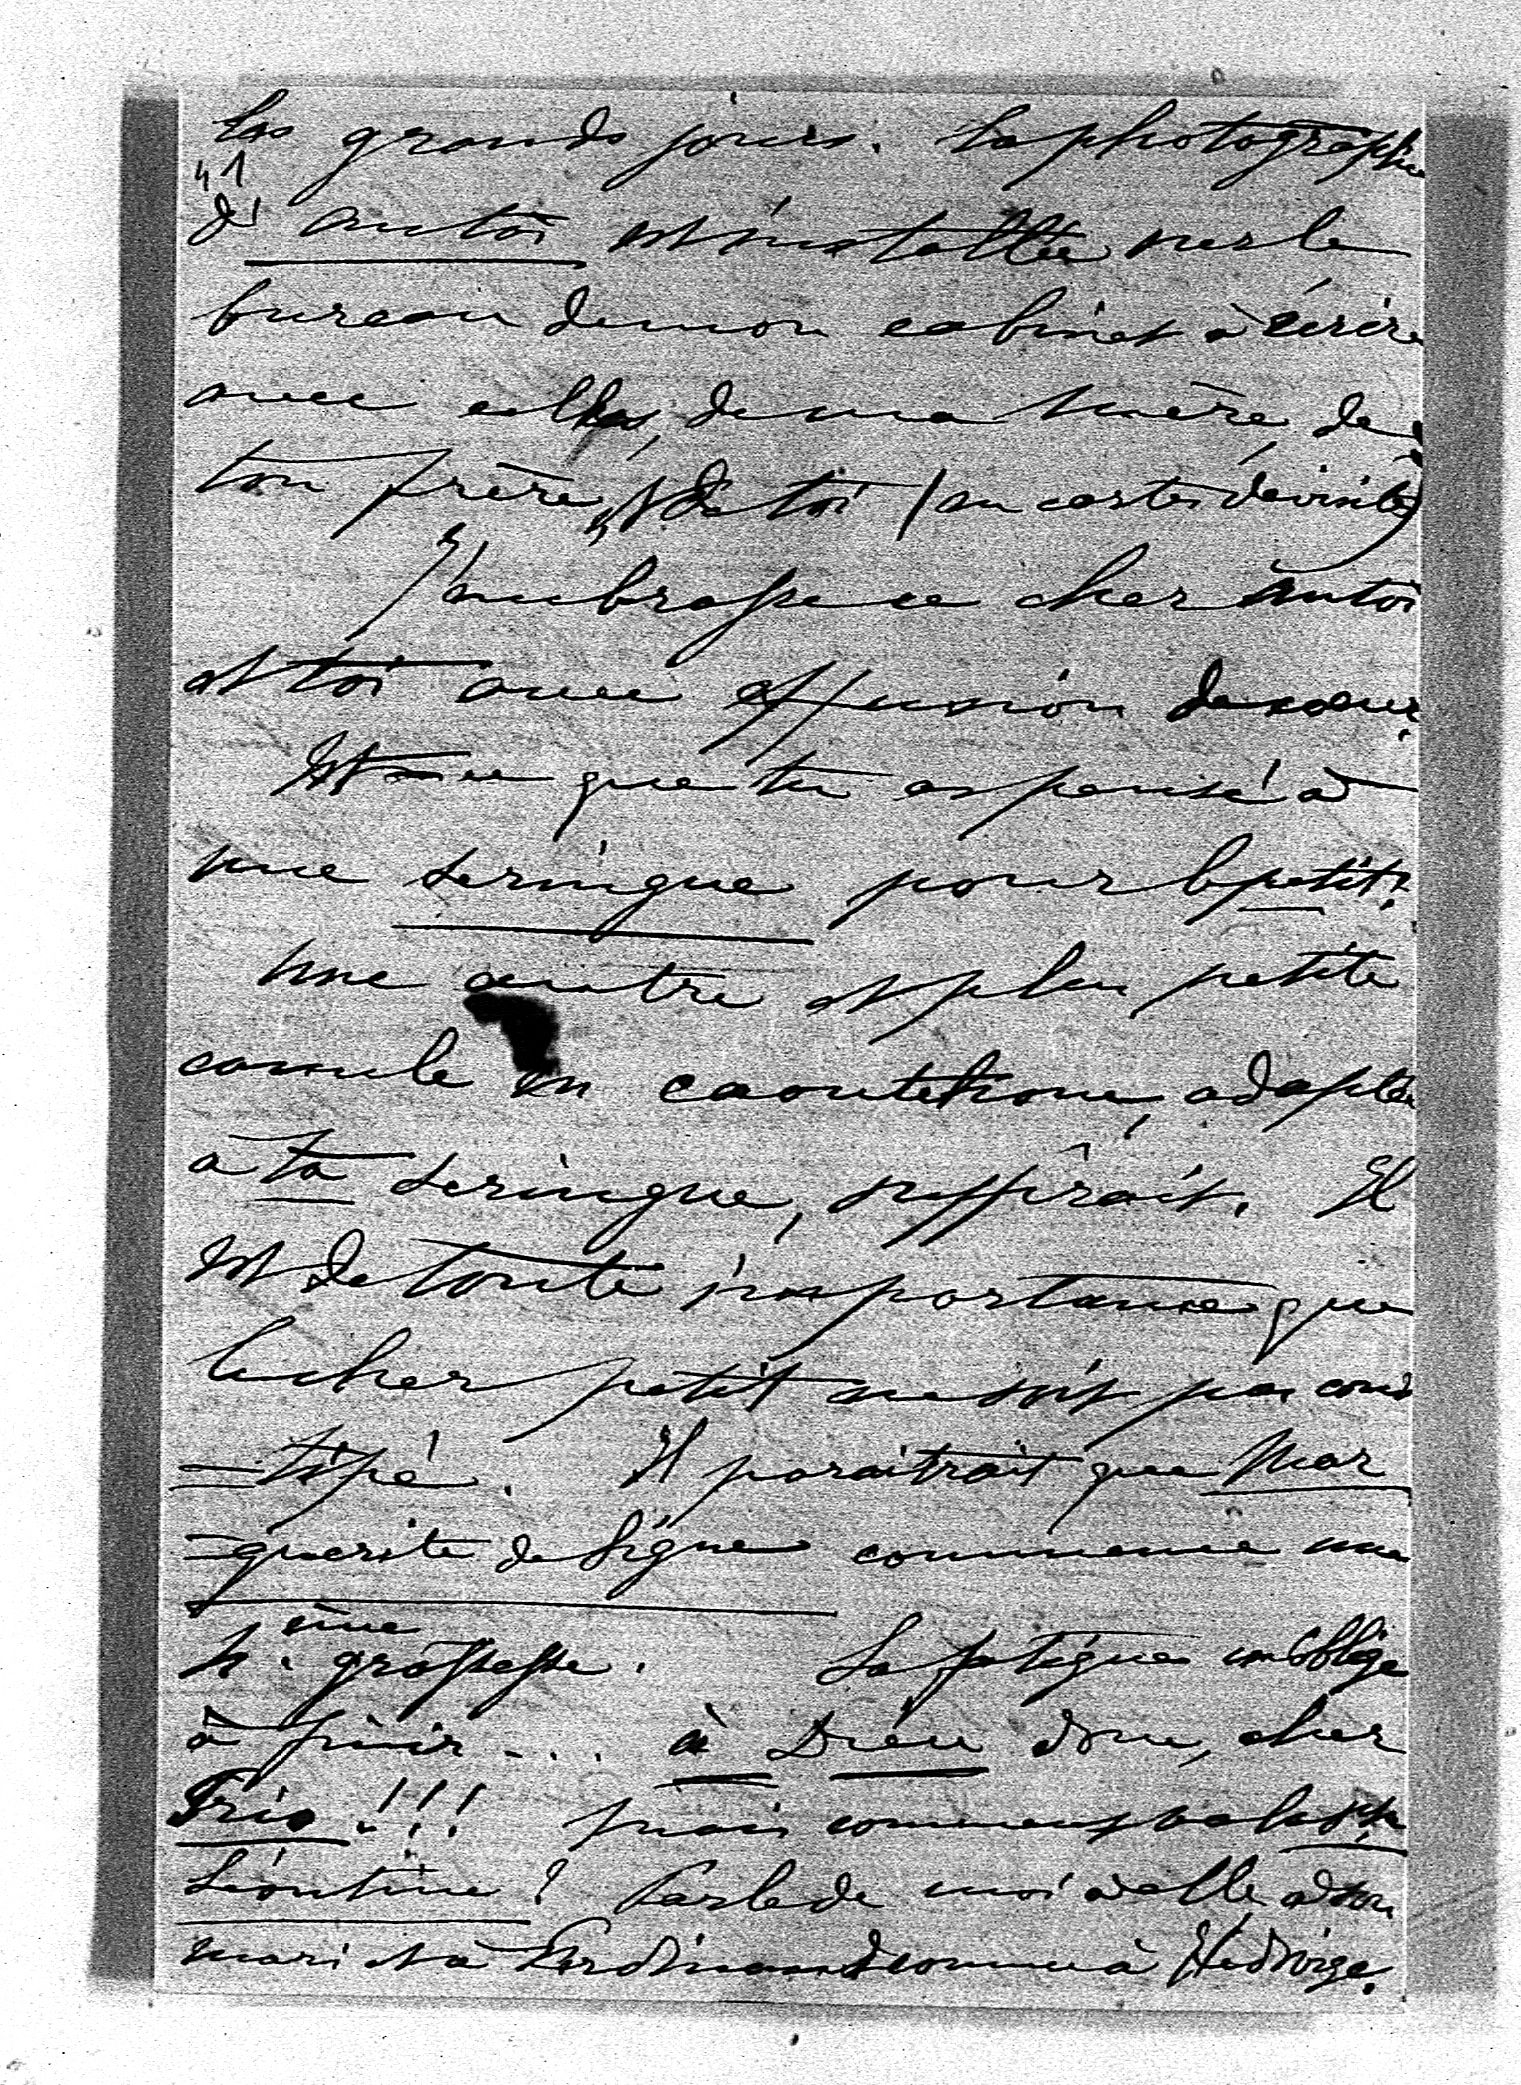 les grands jours. La photographie
d'Antoi est installée sur le
bureau de mon cabinet à écrire
avec celles, de ma mère, de
ton frère, et de toi (en cartes de visite)
J'embrasse ce cher Antoi
et toi avec effusion de cœur.
Est-ce que tu as pensé à
une seringue pour le petit?
une autre et plus petite
canule en caoutchouc, adaptée
a ta seringue, suffirait. Il
est de toute importance que
le cher petit ne soit pas cons
=tipé. Il paraitrait que Mar
=guerite de Ligne commence une
4.ème grossesse. La fatigue m'oblige
à finir... à Dieu donc, cher
Frio!!! mais comment va
Léontine? Parle de moi à elle à son
mari et à Ferdinand comme à Hedwige.